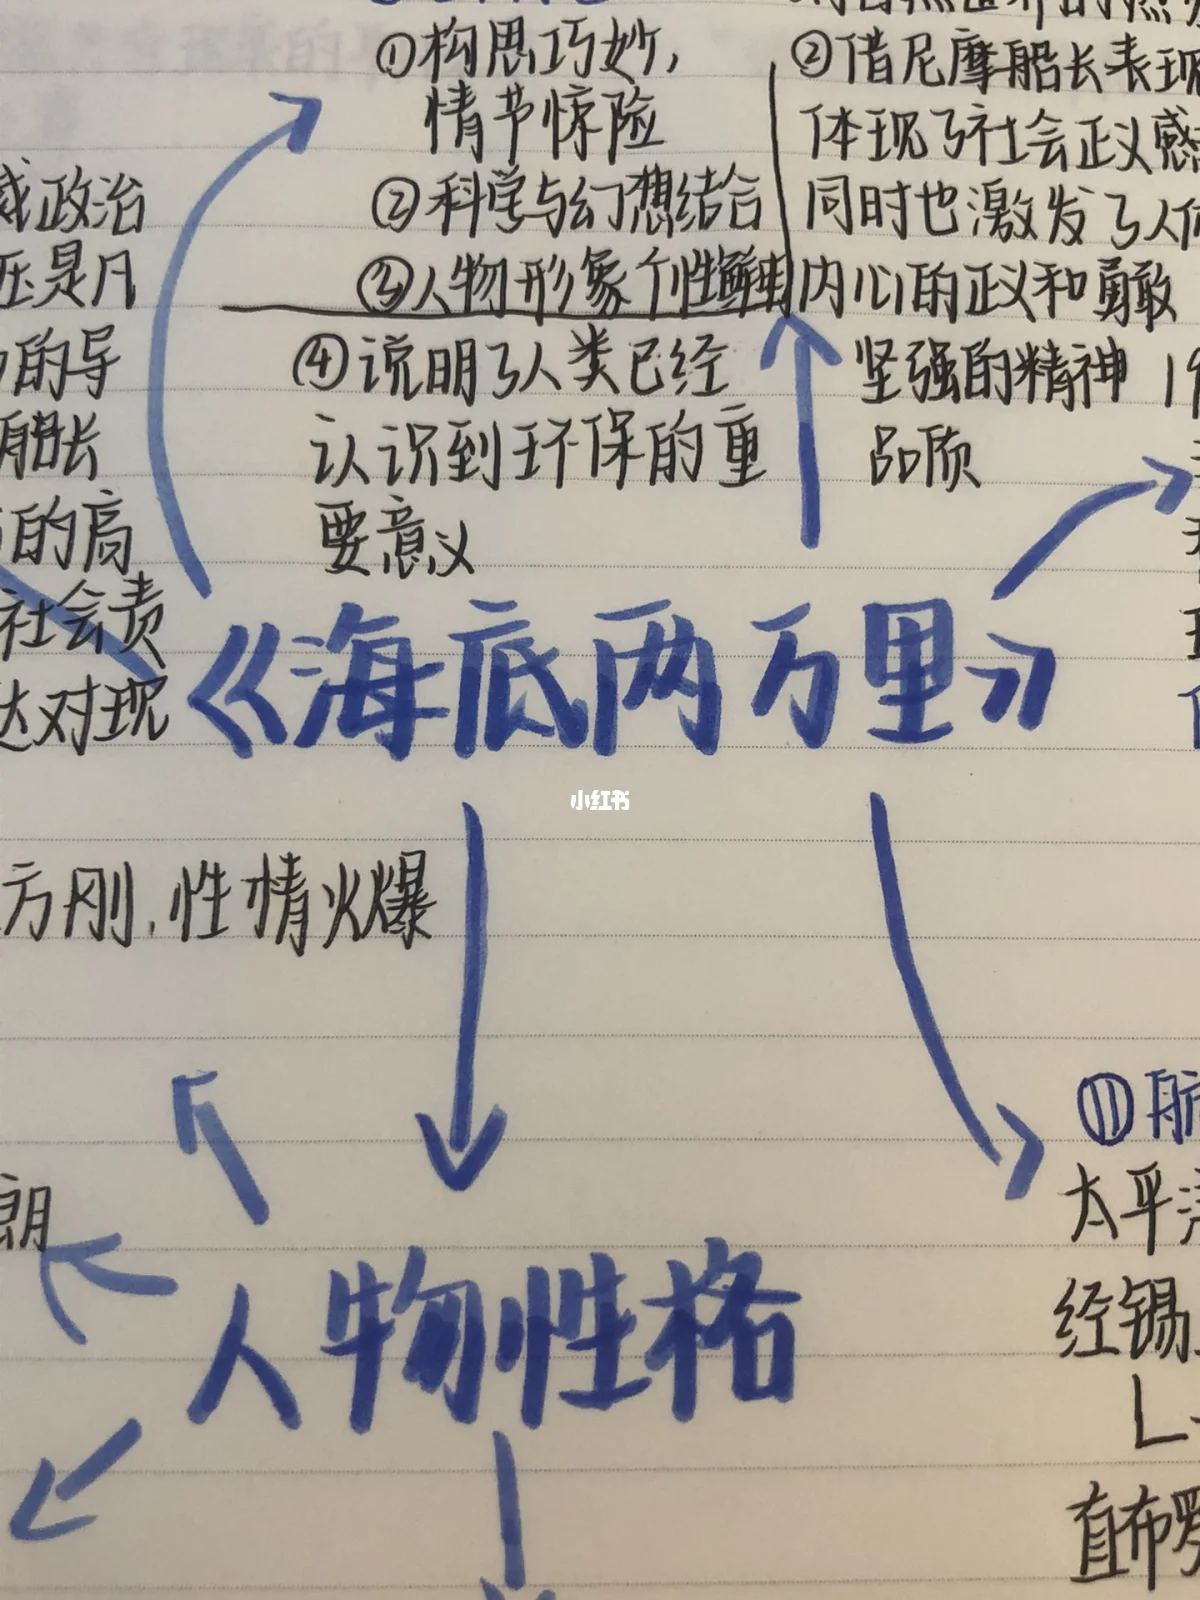 ①构思巧妙,
情节惊险
②科学与幻想结合
③人物形象个性鲜明
④说明了人类已经
认识到环保的重
要意义
②借尼摩船长表现
体现了社会正义感
同时也激发了人们
内心的正义和勇敢
坚强的精神
品质
政治
压是凡
的导
船长
的高
社会责
达对现
《海底两万里》
小红书
方刚,性情火爆
朗
人物性格
⑪
太平洋
经锡
直布罗